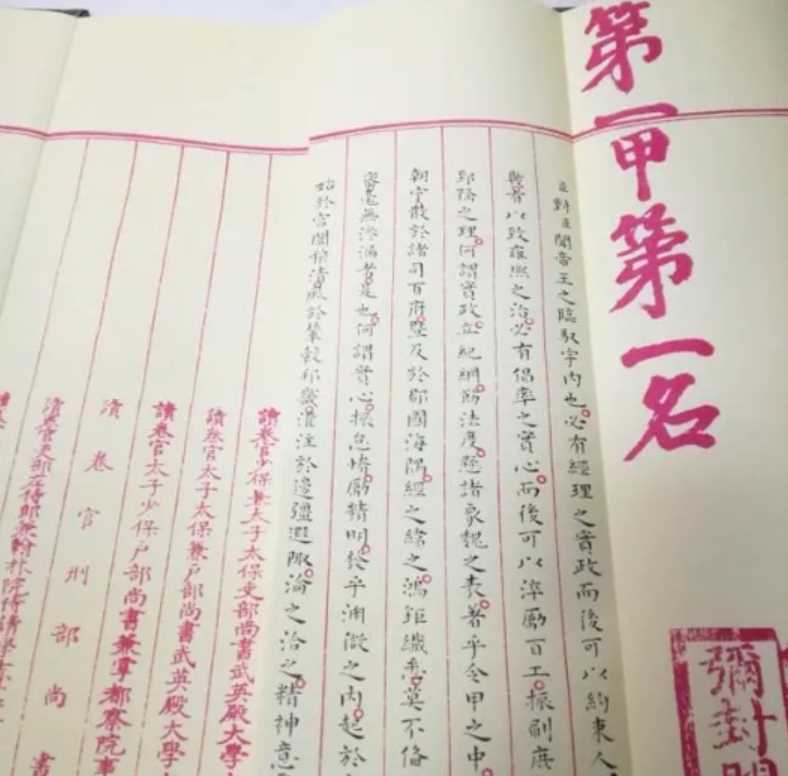 第一甲第一名
彌封
臣對臣聞帝王之臨馭宇內也必有經理之實政而後可以約束人
以致雍熙之治必有倡率之實心而後可以淬勵百工振刷庶
郅隆之理何謂實政立紀綱飭法度懸諸象魏之表著乎令甲之中
朝寧散於諸司百府暨及於郡國海隅經之緯之鴻鉅纖悉莫不備
密毫無滲漏者是也何謂實心振怠惰勵精明發乎淵微之內起於
始於宮闈穆清風於輦轂邦畿灌注於邊疆遐陬淪之洽之精神意
讀卷官少保兼太子太保吏部尚書武英殿大學
讀卷官太子太保兼戶部尚書武英殿大學
讀卷官太子少保戶部尚書兼掌都察院事
讀卷官刑部尚書
讀卷官吏部左侍郎兼翰林院侍讀學士